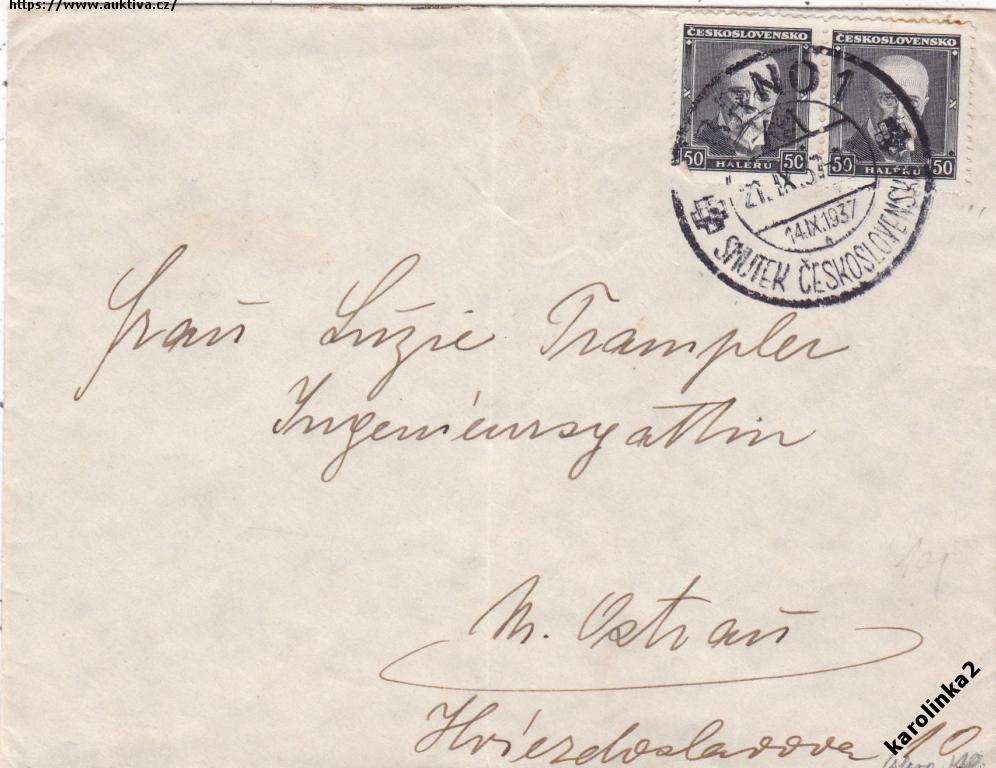 https://www.auktiva.cz/
ČESKOSLOVENSKO ČESKOSLOVENSKO
50 HALÉŘŮ 50 50 HALÉŘŮ 50
BRNO 1
21.IX.37
14.IX.1937
SMUTEK ČESKOSLOVENSKA
Frau Lúzie Trampler
Ingenieursgattin
M. Ostrau
Hviezdoslavova 10
karolinka2